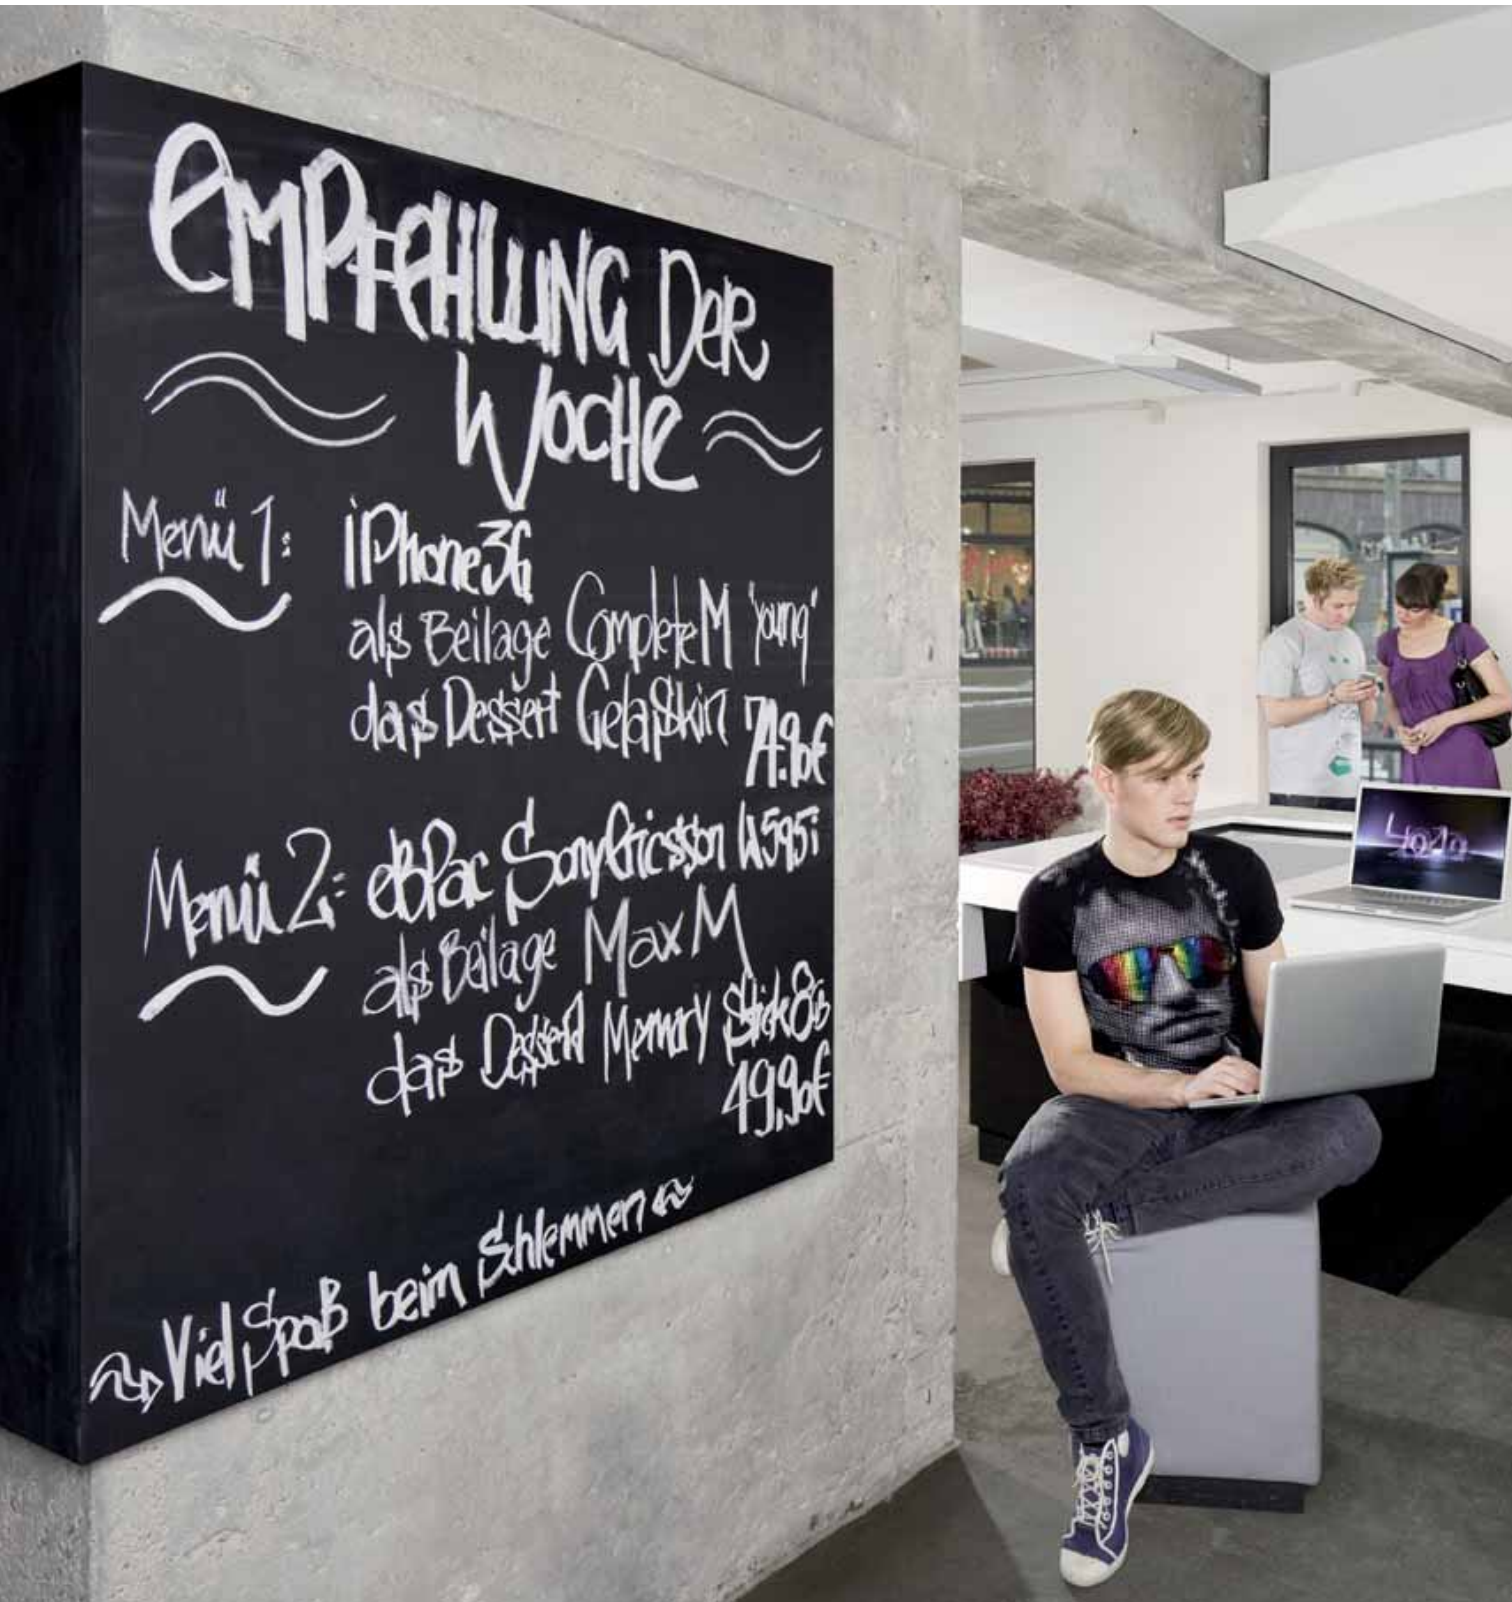 EMPFEHLUNG DER
WOCHE
Menü 1: iPhone 3G
als Beilage Complete M "young"
das Dessert GelaSkin
74.90€
Menü 2: eBPac SonyEricsson W595i
als Beilage Max M
das Dessert Memory Stick 8GB
49,90€
Viel Spaß beim Schlemmen
4010